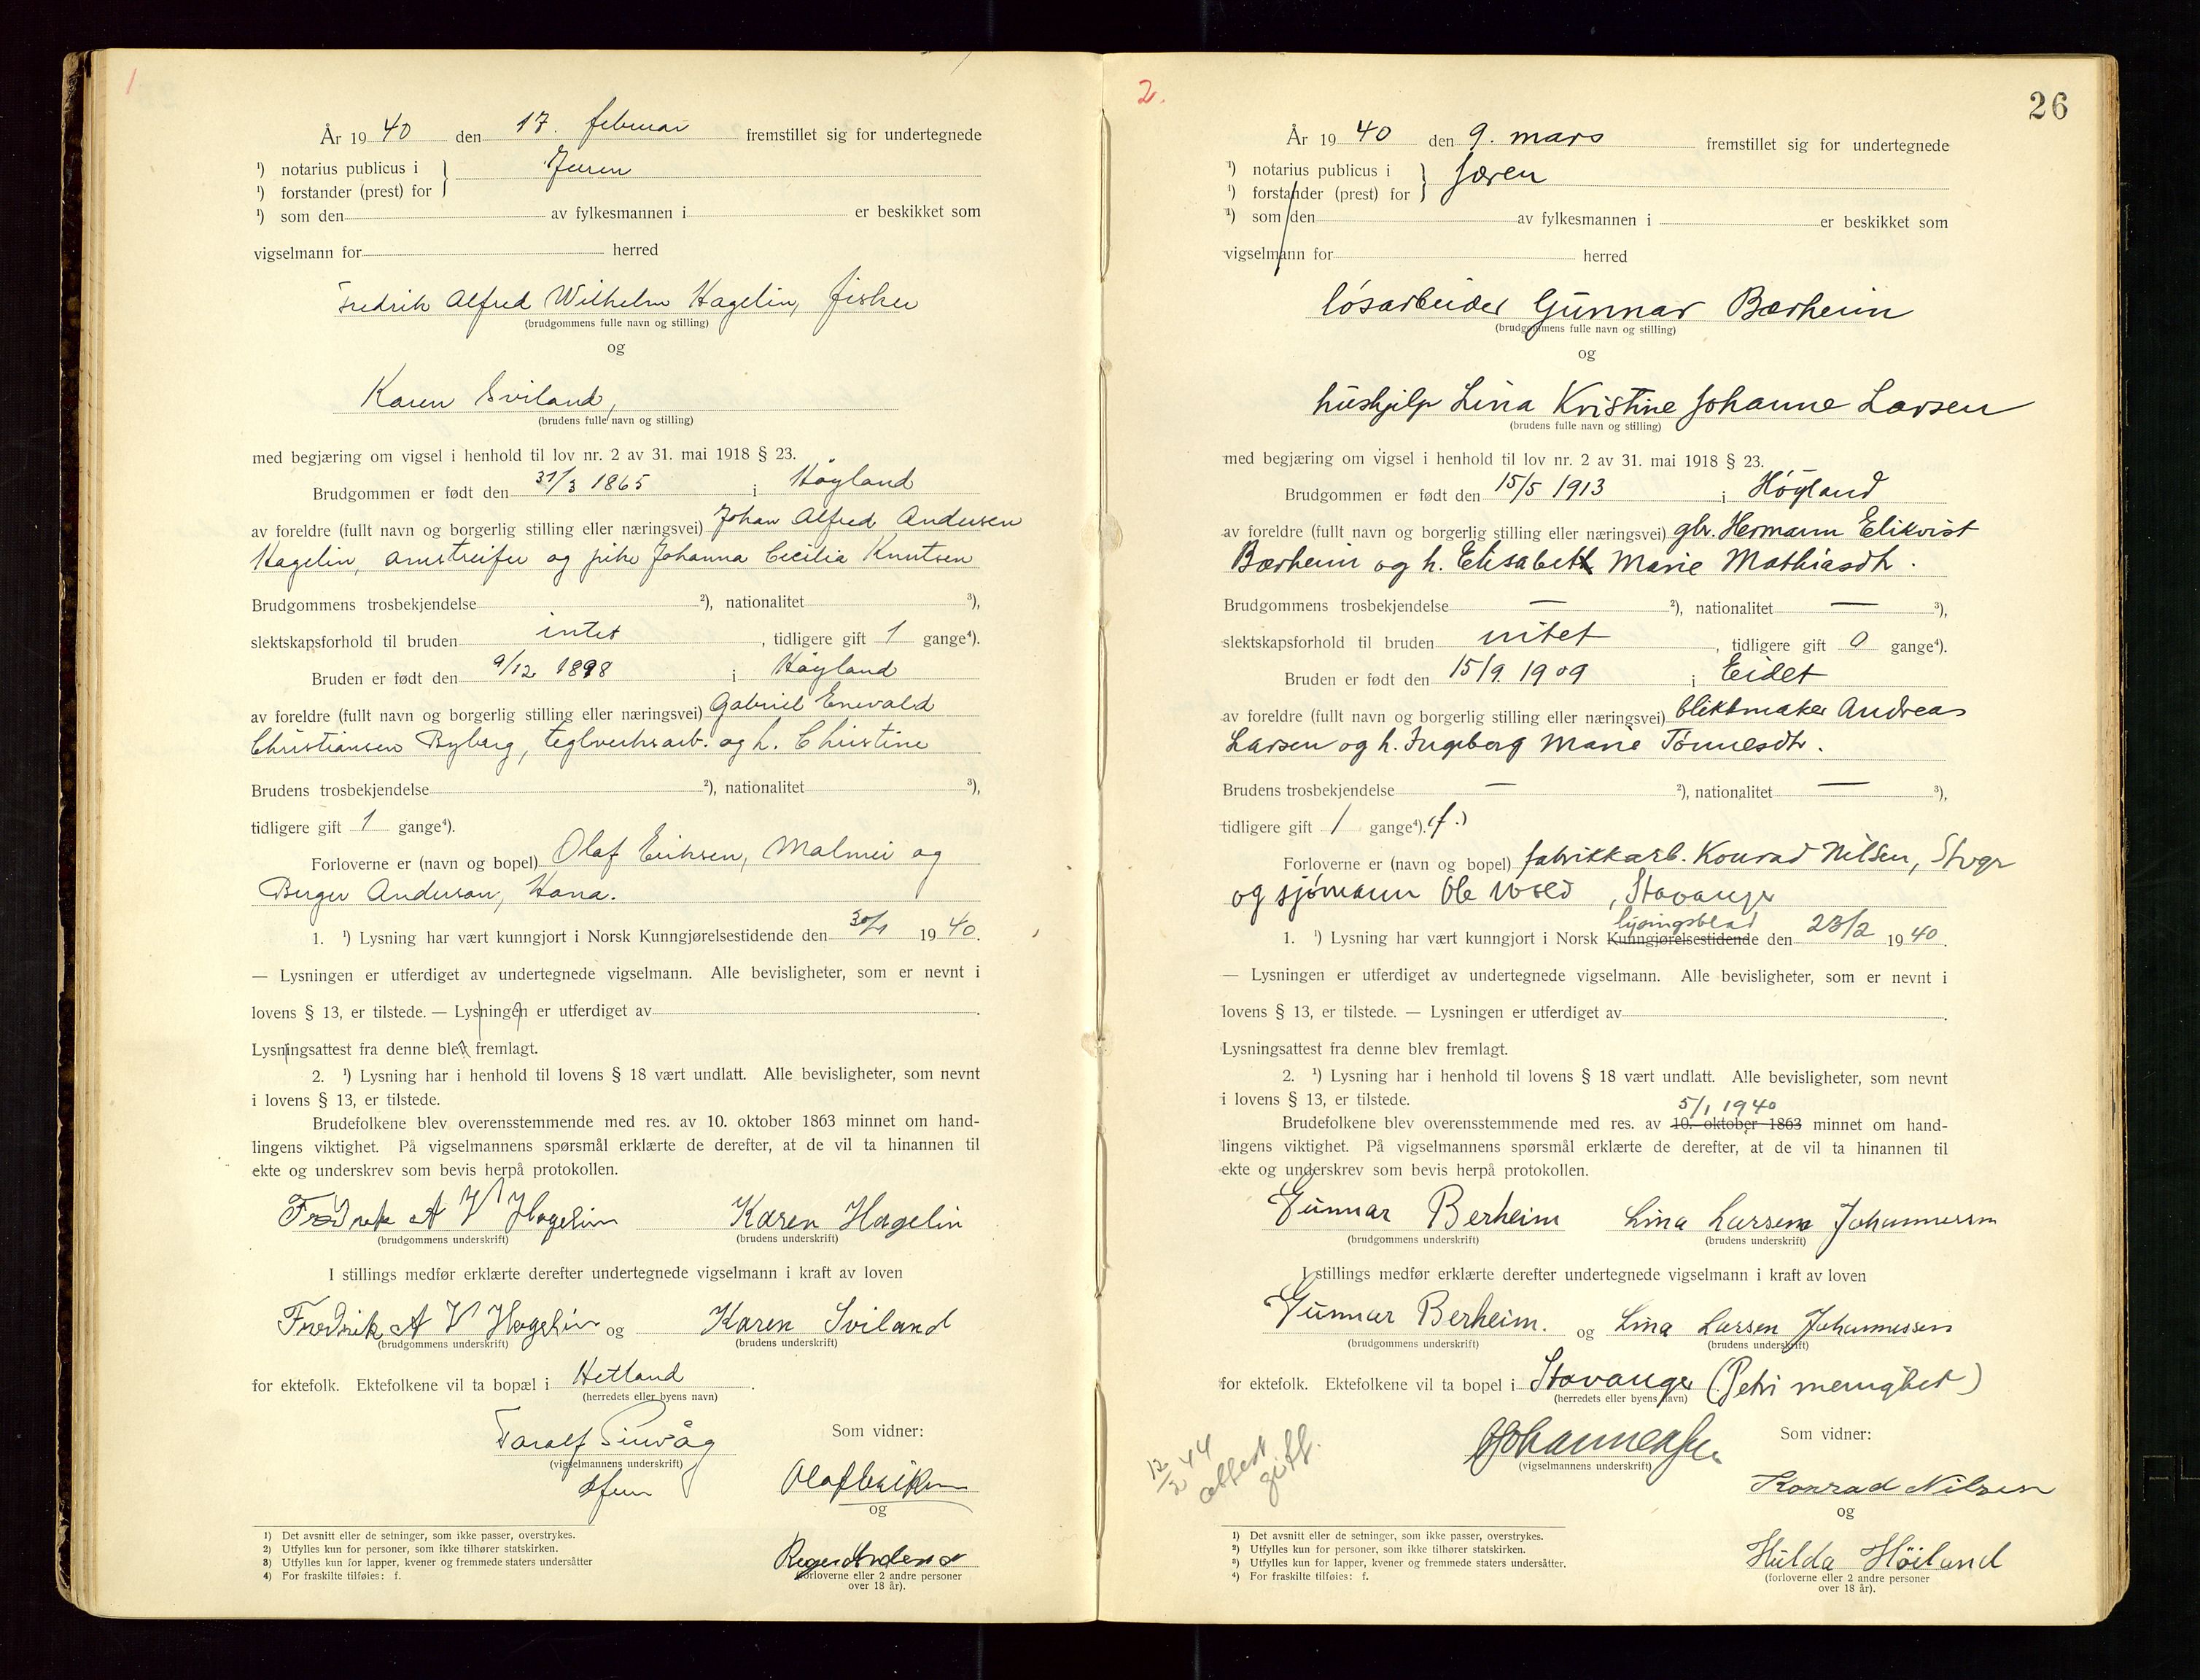 1
År 1940 den 17. februar fremstillet sig for undertegnede
¹) notarius publicus i
Jæren
¹) forstander (prest) for
¹) som den av fylkesmannen i er beskikket som
vigselmann for herred
Fredrik Alfred Wilhelm Hagelin, fisker
(brudgommens fulle navn og stilling)
og
Karen Sviland,
(brudens fulle navn og stilling)
med begjæring om vigsel i henhold til lov nr. 2 av 31. mai 1918 § 23.
Brudgommen er født den 31/3 1865 i Høyland
av foreldre (fullt navn og borgerlig stilling eller næringsvei) Johan Alfred Andersen
Hagelin, og pike Johanna Cecilia Knutsen
Brudgommens trosbekjendelse ²), nationalitet ³),
slektskapsforhold til bruden intet, tidligere gift 1 gange⁴).
Bruden er født den 9/12 1898 i Høyland
av foreldre (fullt navn og borgerlig stilling eller næringsvei) Gabriel Enevald
Christiansen Byberg, teglverksarb. og h. Christine
Brudens trosbekjendelse ²), nationalitet ³),
tidligere gift 1 gange⁴).
Forloverne er (navn og bopel) Olaf Eriksen, Malmei og
Berger Anderson, Hana.
1. ¹) Lysning har vært kunngjort i Norsk Kunngjørelsestidende den 30/1 1940.
— Lysningen er utferdiget av undertegnede vigselmann. Alle bevisligheter, som er nevnt i
lovens § 13, er tilstede. — Lysningen er utferdiget av .
Lysningsattest fra denne blev fremlagt.
2. ¹) Lysning har i henhold til lovens § 18 vært undlatt. Alle bevisligheter, som nevnt
i lovens § 13, er tilstede.
Brudefolkene blev overensstemmende med res. av 10. oktober 1863 minnet om hand-
lingens viktighet. På vigselmannens spørsmål erklærte de derefter, at de vil ta hinannen til
ekte og underskrev som bevis herpå protokollen.
Fredrik A V Hagelin Karen Hagelin
(brudgommens underskrift) (brudens underskrift)
I stillings medfør erklærte derefter undertegnede vigselmann i kraft av loven
Fredrik A V Hagelin og Karen Sviland
(brudgommens underskrift) (brudens underskrift)
for ektefolk. Ektefolkene vil ta bopæl i Hetland.
(herredets eller byens navn)
Som vidner:
Taralf
(vigselmannens underskrift)
Olaf Eriksen
og
¹) Det avsnitt eller de setninger, som ikke passer, overstrykes.
²) Utfylles kun for personer, som ikke tilhører statskirken.
³) Utfylles kun for lapper, kvener og fremmede staters undersåtter
⁴) For fraskilte tilføies: f.
(forloverne eller 2 andre personer
over 18 år).
2.
26
År 1940 den 9. mars fremstillet sig for undertegnede
¹) notarius publicus i
Jæren
¹) forstander (prest) for
¹) som den av fylkesmannen i er beskikket som
vigselmann for herred
løsarbeider Gunnar Bærheim
(brudgommens fulle navn og stilling)
og
hushjelp Lina Kristine Johanne Larsen
(brudens fulle navn og stilling)
med begjæring om vigsel i henhold til lov nr. 2 av 31. mai 1918 § 23.
Brudgommen er født den 15/5 1913 i Høyland
av foreldre (fullt navn og borgerlig stilling eller næringsvei) gbr. Hermann Elikvist
Bærheim og h. Elisabeth Marie Mathiasdtr.
Brudgommens trosbekjendelse — ²), nationalitet — ³),
slektskapsforhold til bruden intet, tidligere gift 0 gange⁴).
Bruden er født den 15/9. 1909 i Eidet
av foreldre (fullt navn og borgerlig stilling eller næringsvei) blikkmaker Andreas
Larsen og h. Ingeborg Marie Tønnesdtr.
Brudens trosbekjendelse — ²), nationalitet — ³),
tidligere gift 1 gange⁴). (f.)
Forloverne er (navn og bopel) fabrikkarb. Konrad Nilsen, Stvgr
og sjømann Ole Wold, Stavanger
lysingsblad
1. ¹) Lysning har vært kunngjort i Norsk Kunngjørelsestidende den 23/2 1940.
— Lysningen er utferdiget av undertegnede vigselmann. Alle bevisligheter, som er nevnt i
lovens § 13, er tilstede. — Lysningen er utferdiget av .
Lysningsattest fra denne blev fremlagt.
2. ¹) Lysning har i henhold til lovens § 18 vært undlatt. Alle bevisligheter, som nevnt
i lovens § 13, er tilstede.
5/1 1940
Brudefolkene blev overensstemmende med res. av 10. oktober 1863 minnet om hand-
lingens viktighet. På vigselmannens spørsmål erklærte de derefter, at de vil ta hinannen til
ekte og underskrev som bevis herpå protokollen.
Gunnar Berheim Lina Larsen Johannessen
(brudgommens underskrift) (brudens underskrift)
I stillings medfør erklærte derefter undertegnede vigselmann i kraft av loven
Gunnar Berheim. og Lina Larsen Johannessen
(brudgommens underskrift) (brudens underskrift)
for ektefolk. Ektefolkene vil ta bopel i Stavanger (Petri menighet)
(herredets eller byens navn)
12/2 44
attest
gitt.
Johannessen
(vigselmannens underskrift)
Som vidner:
Konrad Nilsen
og
Hulda Höiland
(forloverne eller 2 andre personer
over 18 år).
¹) Det avsnitt eller de setninger, som ikke passer, overstrykes.
²) Utfylles kun for personer, som ikke tilhører statskirken.
³) Utfylles kun for lapper, kvener og fremmede staters undersåtter.
⁴) For fraskilte tilføies: f.